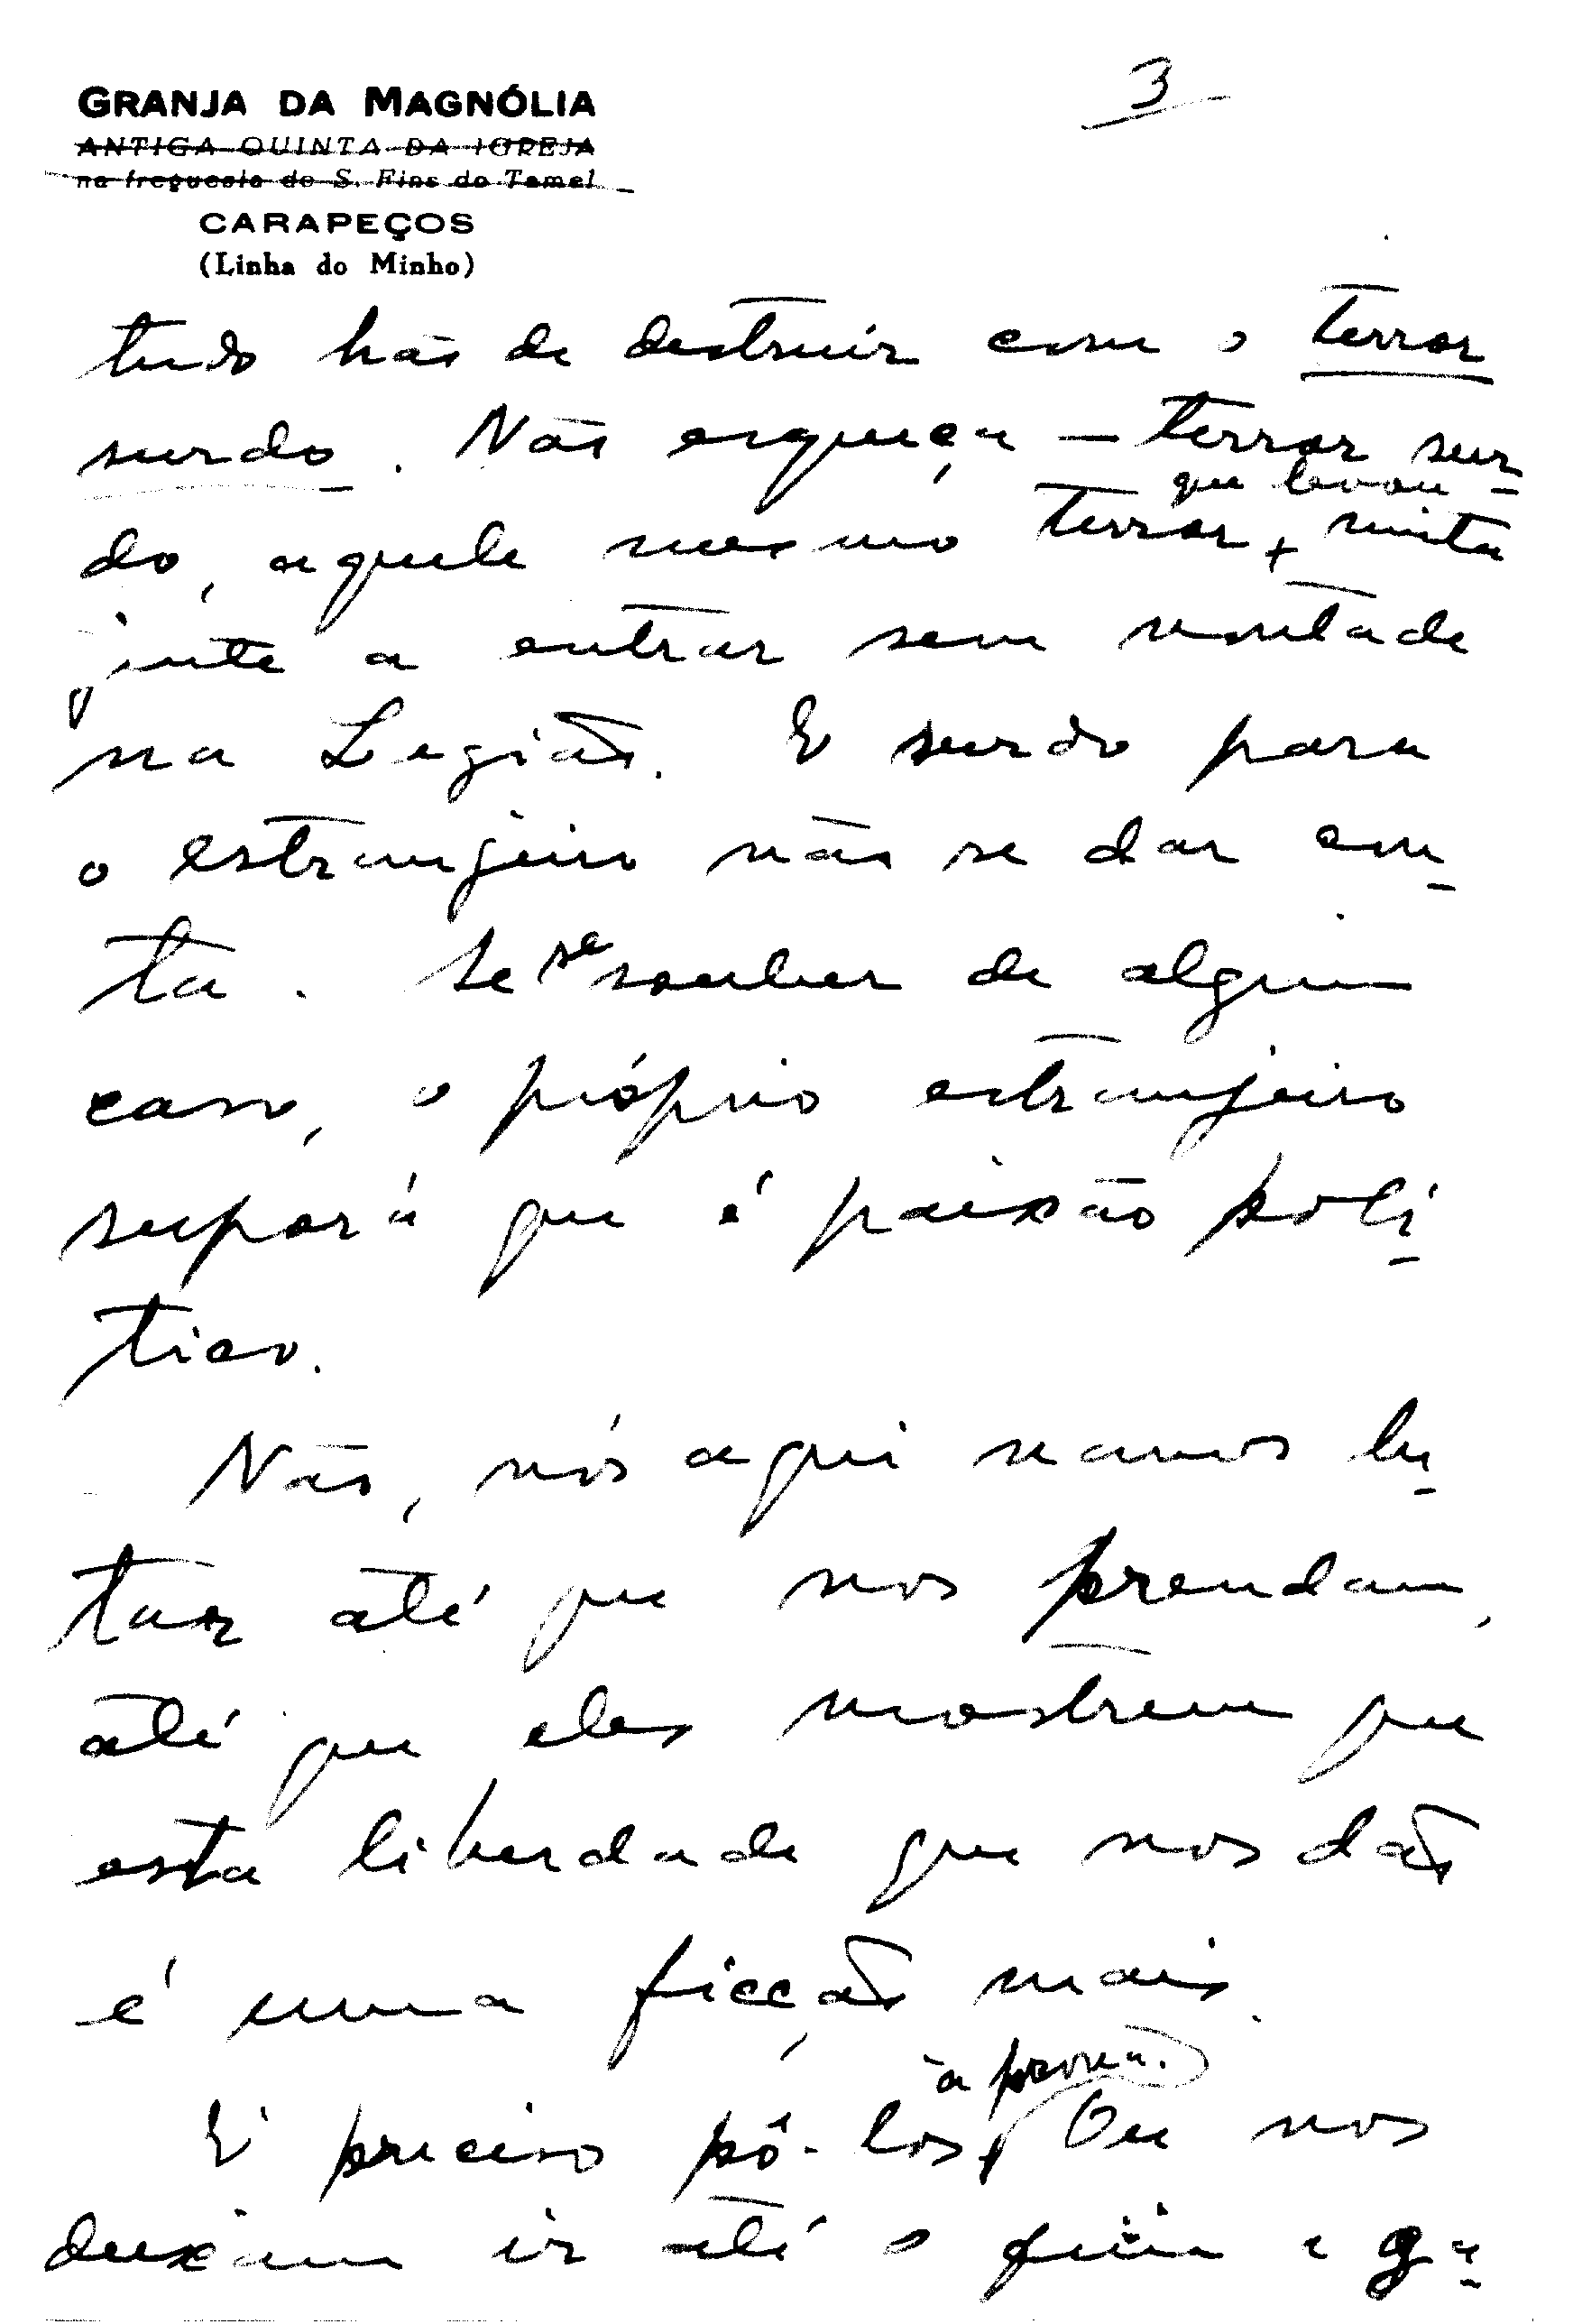 3
GRANJA DA MAGNÓLIA
ANTIGA QUINTA DA IGREJA
na freguesia de S. Fins do Tamel
CARAPEÇOS
(Linha do Minho)
tudo hão de destruir com o terror
surdo. Não esqueça — terror sur-
do, aquele mesmo terror, que levou muita
gente a entrar sem vontade
na Legião. E surdo para
o estranjeiro não se dar con-
ta. Se se souber de algum
caso, o próprio estranjeiro
suporá que é paixão polí-
tica.
Não, nós aqui vamos lu-
tar até que nos prendam,
até que eles mostrem que
esta liberdade que nos dão
é uma ficção mais.
É preciso pô-los à prova. Ou nos
deixam ir até o fim e ga-